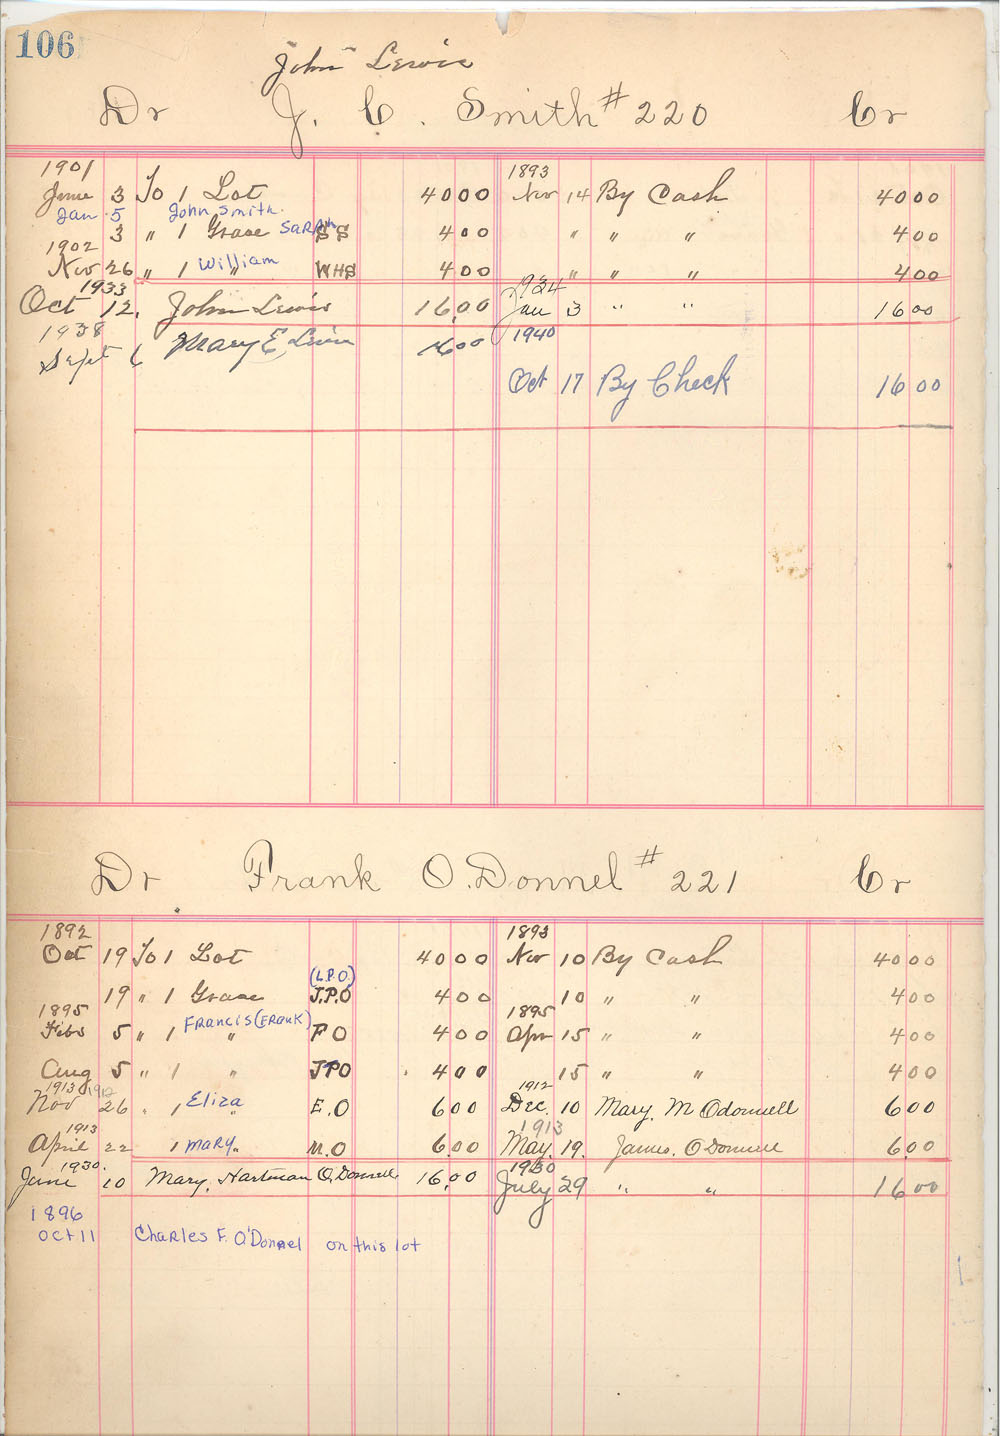 106
"John" Lewis
Dr J. C. Smith # 220 Cr
1901 1893
June 3 To 1 Lot 40 00 Nov 14 By Cash 40 00
Jan 5 John Smith.
3 " 1 Grave Sarah S S 4 00 " " " 4 00
1902
Nov 26 " 1 William " WHS 4 00 " " " 4 00
1933 1934
Oct 12. John Lewis 16.00 Jan 3 " " 16 00
1938 1940
Sept 6 Mary E. Lewis 16 00
Oct 17 By Check 16 00
Dr Frank O.Donnel # 221 Cr
1892 1893
Oct 19 To 1 Lot 40 00 Nov 10 By Cash 40 00
(L.P.O)
19 " 1 Grave J.P.O 4 00 10 " " 4 00
1895 1895
Feb 5 " 1 Francis (Frank) " F O 4 00 Apr 15 " " 4 00
Aug 5 " 1 " JPO 4 00 15 " " 4 00
1913 1912 1912
Nov 26 " 1 Eliza " E.O 6 00 Dec. 10 Mary. M Odonnell 6 00
1913 1913
April 22 1 Mary " M.O 6.00 May. 19. James. O Donnell 6.00
1930. 1930
June 10 Mary. Hartman O.Donnell 16.00 July 29 " " 16 00
1896
Oct 11 Charles F. O'Donnel on this lot